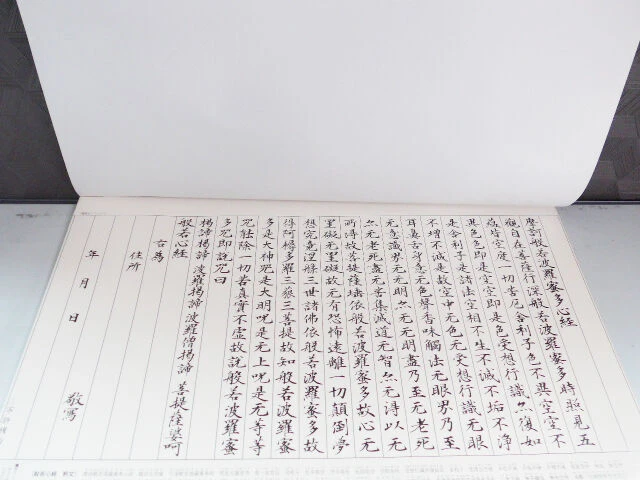 摩訶般若波羅蜜多心經
觀自在菩薩行深般若波羅蜜多時照見五
蘊皆空度一切苦厄舎利子色不異空空不
異色色即是空空即是色受想行識亦復如
是舎利子是諸法空相不生不滅不垢不浄
不増不減是故空中无色无受想行識无眼
耳鼻舌身意无色聲香味觸法无眼界乃至
无意識界无无明亦无无明盡乃至无老死
亦无老死盡无苦集滅道无智亦无得以无
所得故菩提薩埵依般若波羅蜜多故心无
罣礙无罣礙故无有恐怖遠離一切顛倒夢
想究竟涅槃三世諸佛依般若波羅蜜多故
得阿耨多羅三藐三菩提故知般若波羅蜜
多是大神咒是大明咒是无上咒是无等等
咒能除一切苦真實不虛故說般若波羅蜜
多咒即說咒曰
揭諦揭諦 波羅揭諦 波羅僧揭諦 菩提薩婆呵
般若心經
右為
住所
年 月 日 敬寫